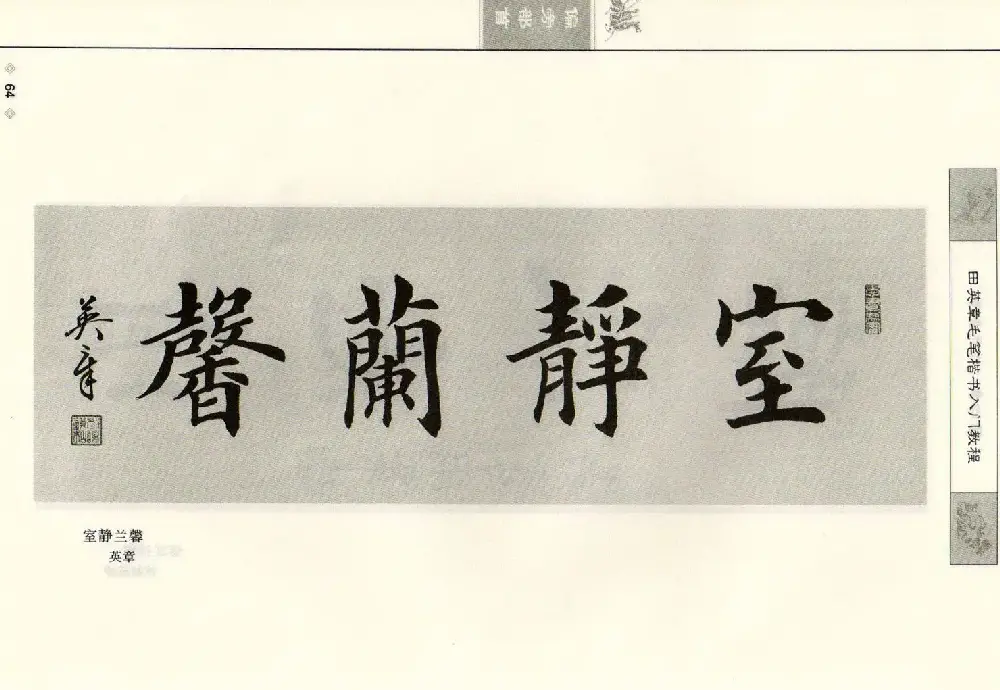 偏旁部首
64
田英章毛笔楷书入门教程
室靜蘭馨
英章
室静兰馨
英章